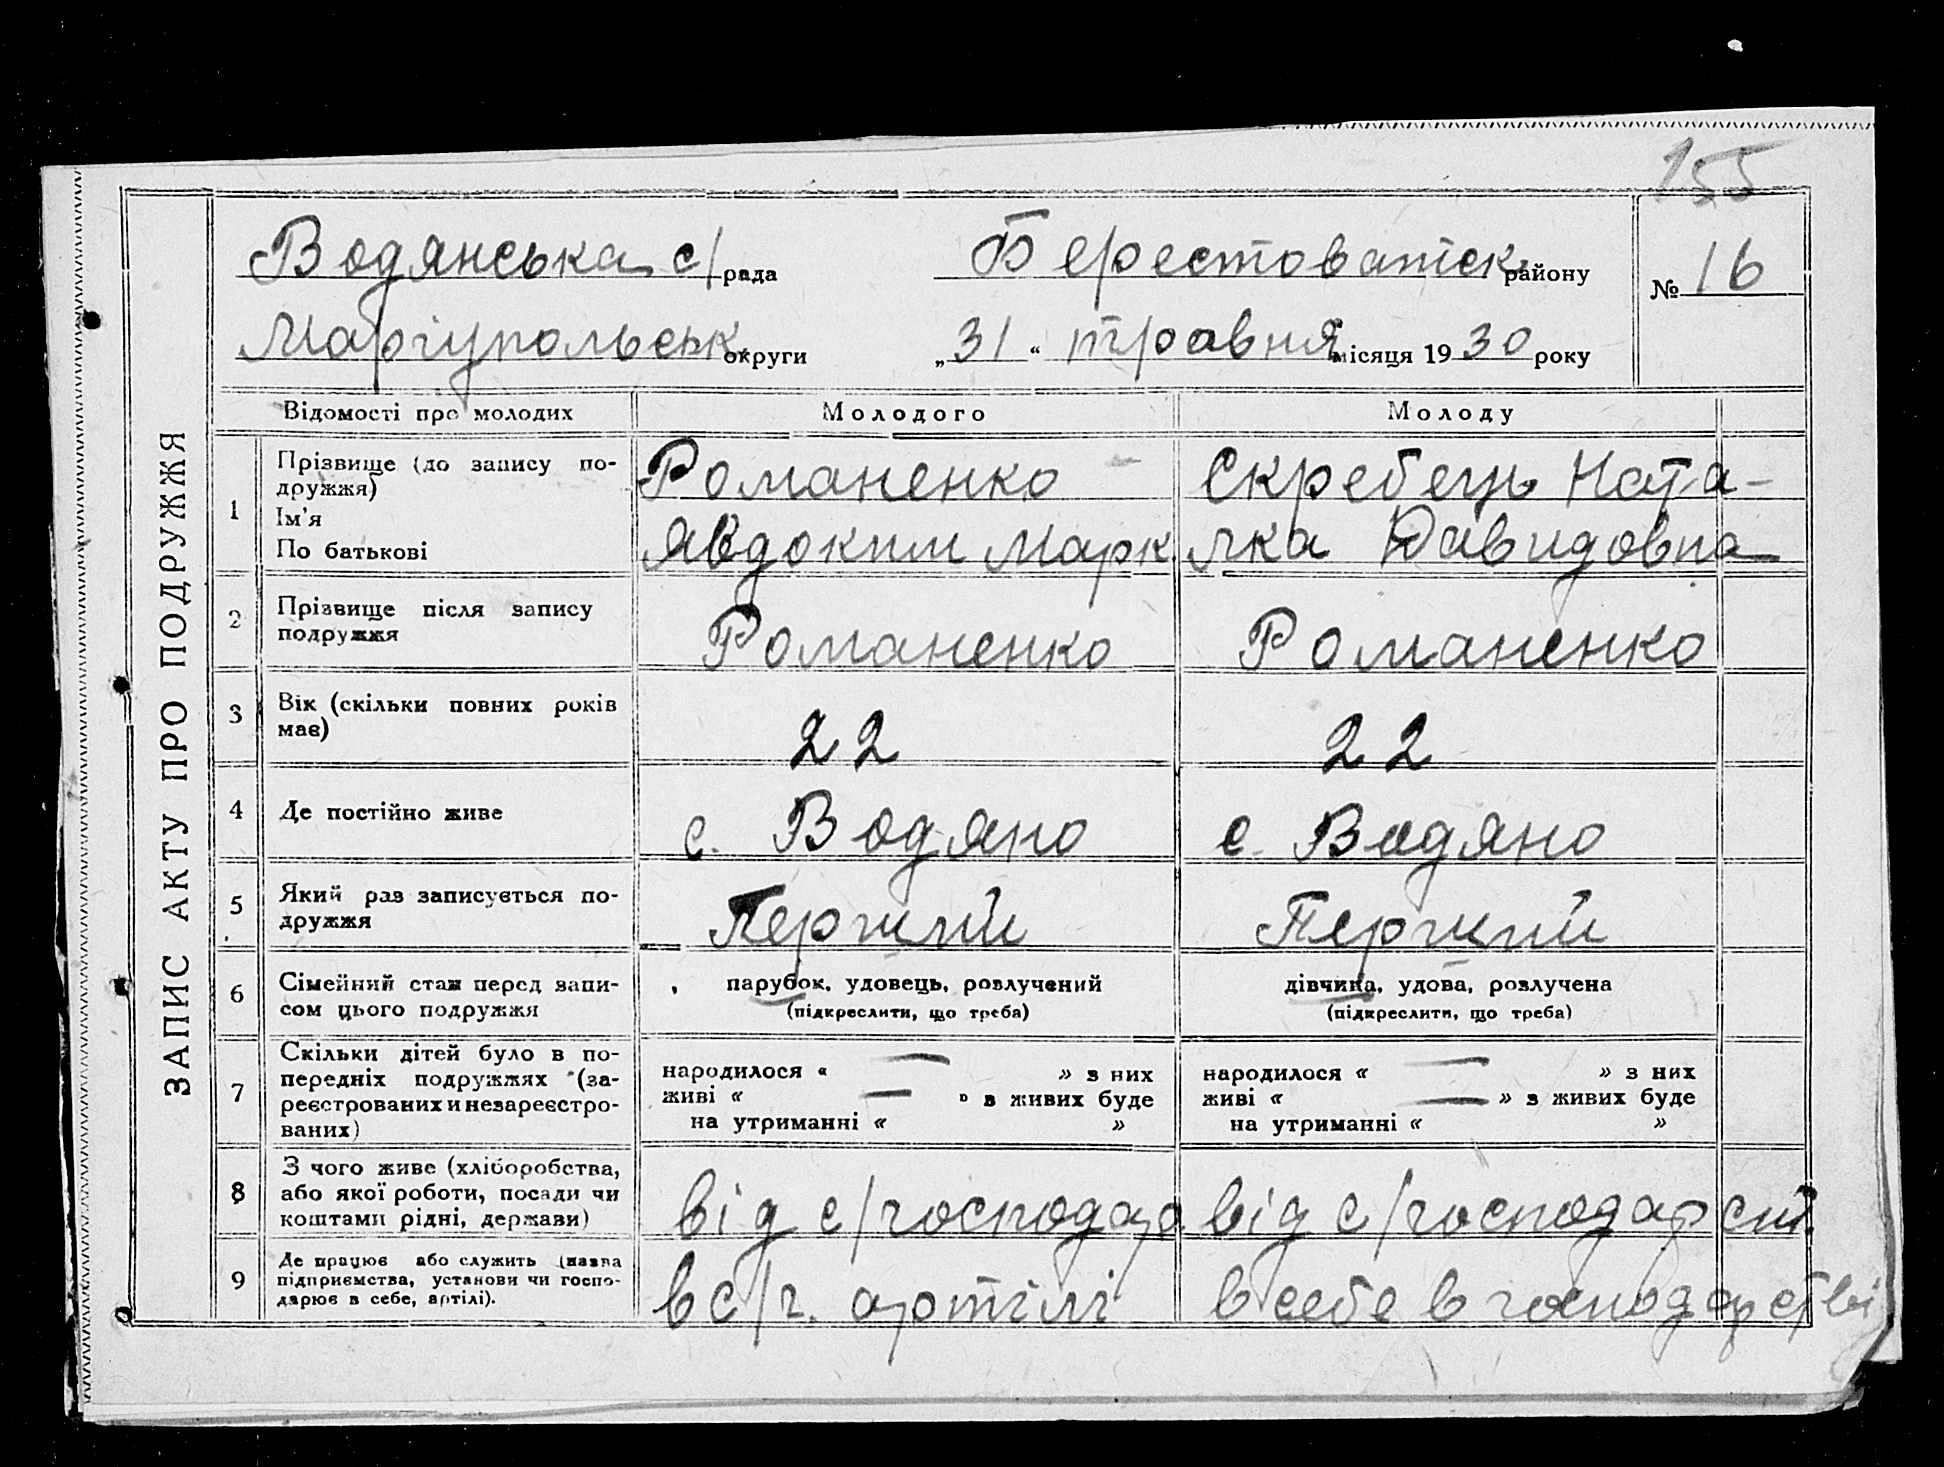 155
Водянська с/рада Берестоватськ району № 16
Маріупольськ округи „31“ травня місяця 1930 року
ЗАПИС АКТУ ПРО ПОДРУЖЖЯ
Відомості про молодих Молодого Молоду
1 Прізвище (до запису по-
дружжя)
Ім'я
По батькові
Романенко
Явдоким Марк
Скребець Ната-
лка Давидовна
2 Прізвище після запису
подружжя
Романенко Романенко
3 Вік (скільки повних років
має)
22 22
4 Де постійно живе с. Водяно с. Водяно
5 Який раз записується по-
дружжя
Перший Перший
6 Сімейний стан перед запи-
сом цього подружжя
парубок, удовець, розлучений
(підкреслити, що треба)
дівчина, удова, розлучена
(підкреслити, що треба)
7 Скільки дітей було в по-
передніх подружжях (за-
реєстрованих и незареєстро-
ваних)
народилося « — » з них
живі « — » з живих буде
на утриманні « »
народилося « — » з них
живі « — » з живих буде
на утриманні « »
8 З чого живе (хліборобства,
або якої роботи, посади чи
коштами рідні, держави)
від с/господар від с/господарст.
9 Де працює або служить (назва
підприємства, установи чи госпо-
дарює в себе, артілі).
в с/г. артілі в себе в господарстві